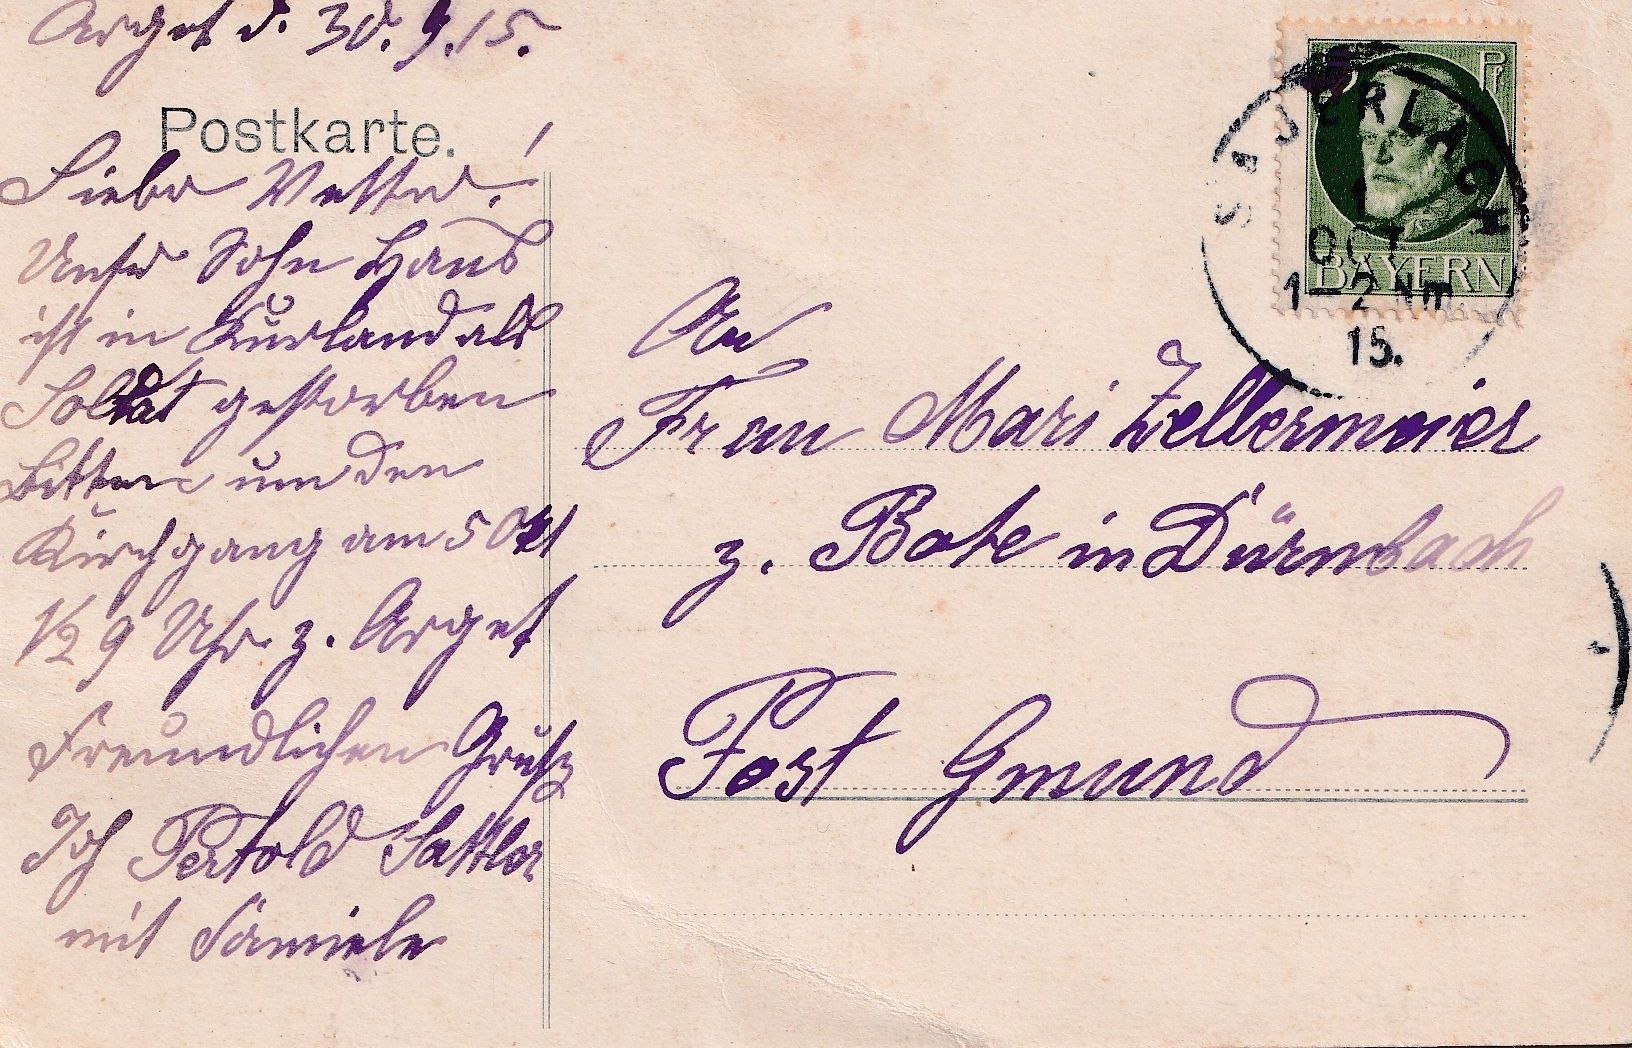 Arget d. 30. 9. 15.
Postkarte.
Liebe Vetter!
Unser Sohn Hans
ist in Kurland als
Soldat gestorben
Bitten um den
Kirchgang am 5 Okt
1/2 9 Uhr z. Arget
Freundlichen Gruß
Joh Pertold Sattler
mit Familie
SAUERLACH
1
OCT
1-2 Nm.
15.
Pf
BAYERN
An
Frau Mari Zellermeier
z. Bote in Dürnbach
Post Gmund